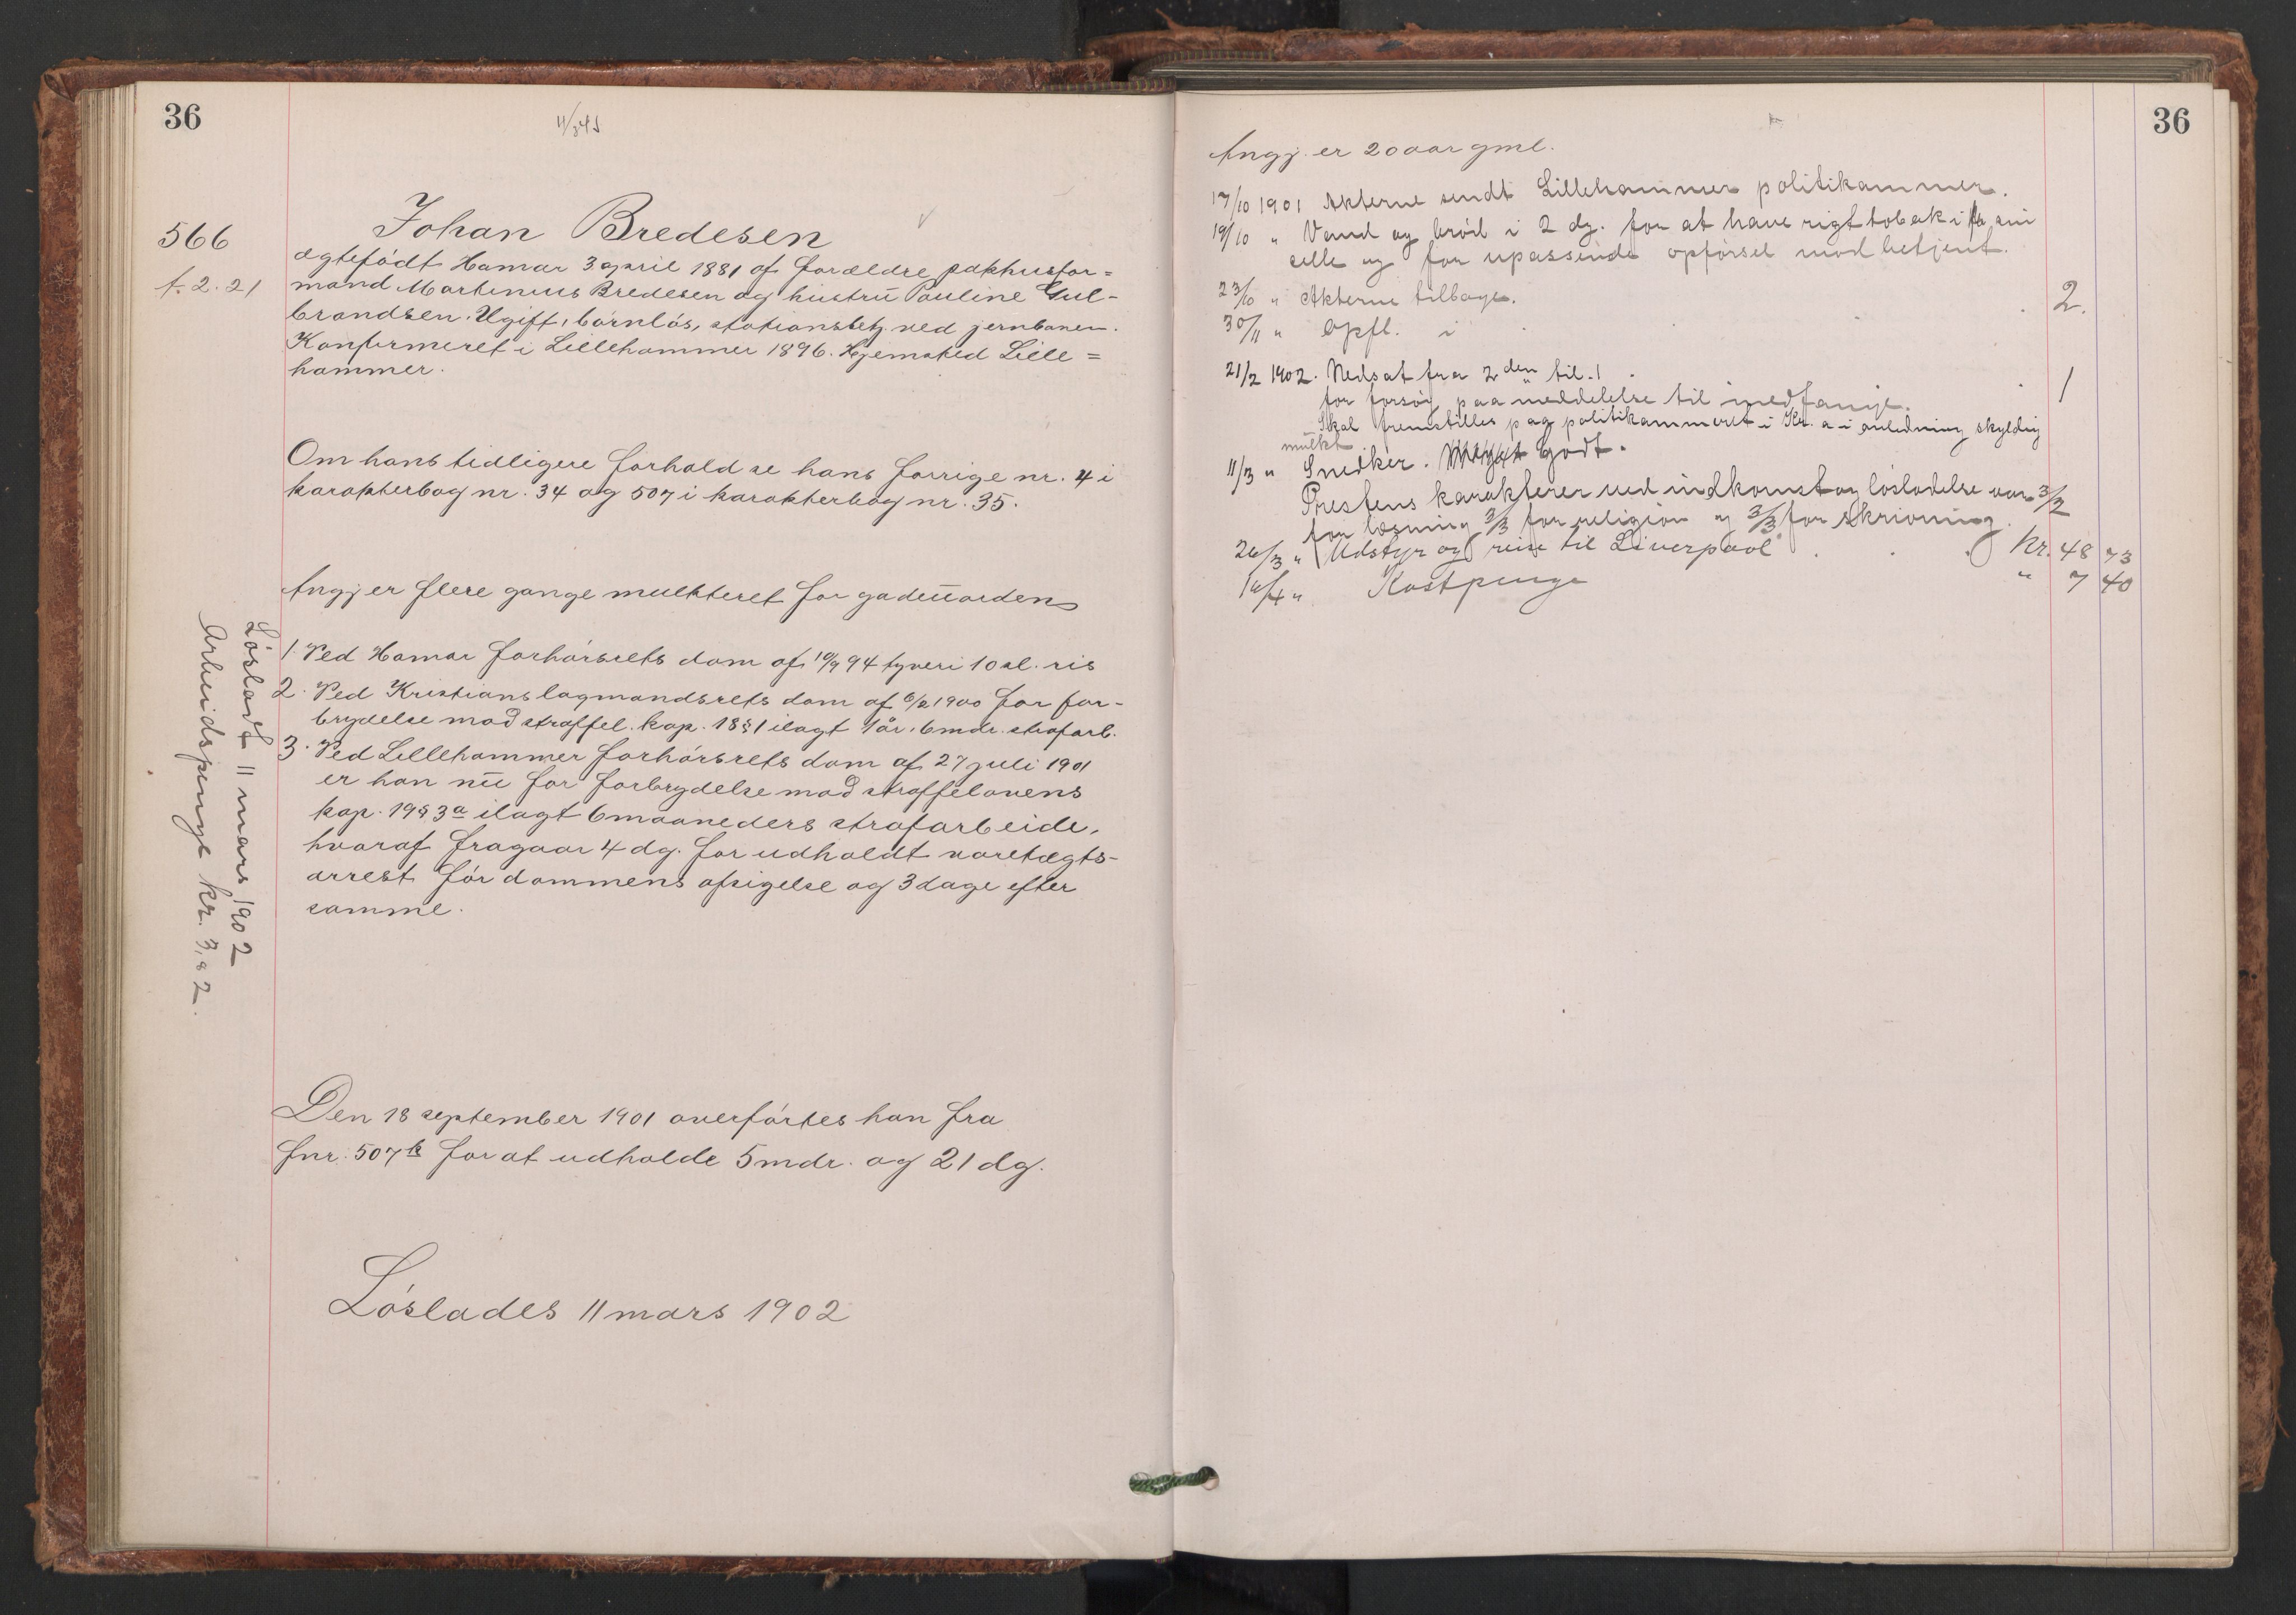 36
566
f. 2. 21
Johan Bredesen
ægtefødt Hamar 3 april 1881 af forældre pakhusfor=
mand Martinius Bredesen og hustru Pauline Gul-
brandsen. Ugift, børnløs, stationsbetj. ved jernbanen.
Konfirmeret i Lillehammer 1896. Hjemsted Lille=
hammer.
Om hans tidligere forhold se hans forrige nr. 4 i
karakterbog nr. 34 og 507 i karakterbog nr. 35.
Angj er flere gange mulkteret for gadeuorden
1. Ved Hamar forhørsrets dom af 10/9 94 tyveri 10 sl. ris
2. Ved Kristians lagmandsrets dom af 6/2 1900 for for-
brydelse mod straffel. kap. 18 § 1 ilagt 1 år. 6 mdr. strafarb.
3. Ved Lillehammer forhørsrets dom af 27 juli 1901
er han nu for forbrydelse mod straffelovens
kap. 19 § 3a ilagt 6 maaneders strafarbeide,
hvoraf fragaar 4 dg. for udholdt varetægts-
arrest før dommens afsigelse og 3 dage efter
samme.
Løsladt 11 mars 1902
Arbeidspenge kr. 3,82.
Den 18 september 1901 overførtes han fra
fnr. 507 b for at udholde 5 mdr. og 21 dg.
Løslades 11 mars 1902
36
Angj. er 20 aar gml.
17/10 1901 Akterne sendt Lillehammer politikammer.
19/10 " Vand og brød i 2 dg. for at have rigt tobak i sin
celle og for upassende opførsel mod betjent.
23/10 " Akterne tilbage.
30/11 " Opfl. i 2.
21/2 1902. Nedsat fra 2den til 1 1
for forsøg paa meddelelse til medfange.
Skal fremstilles paa politikammeret i Kr.a i anledning skyldig
mulkt
11/3 " Snedker. Meget Godt.
Prestens karakterer ved indkomst og løsladelse var 3/2
for læsning 3/3 for religion og 3/3 for skrivning.
26/3 " Udstyr og reise til Liverpool Kr. 48 73
16/4 " Kostpenge " 7 40